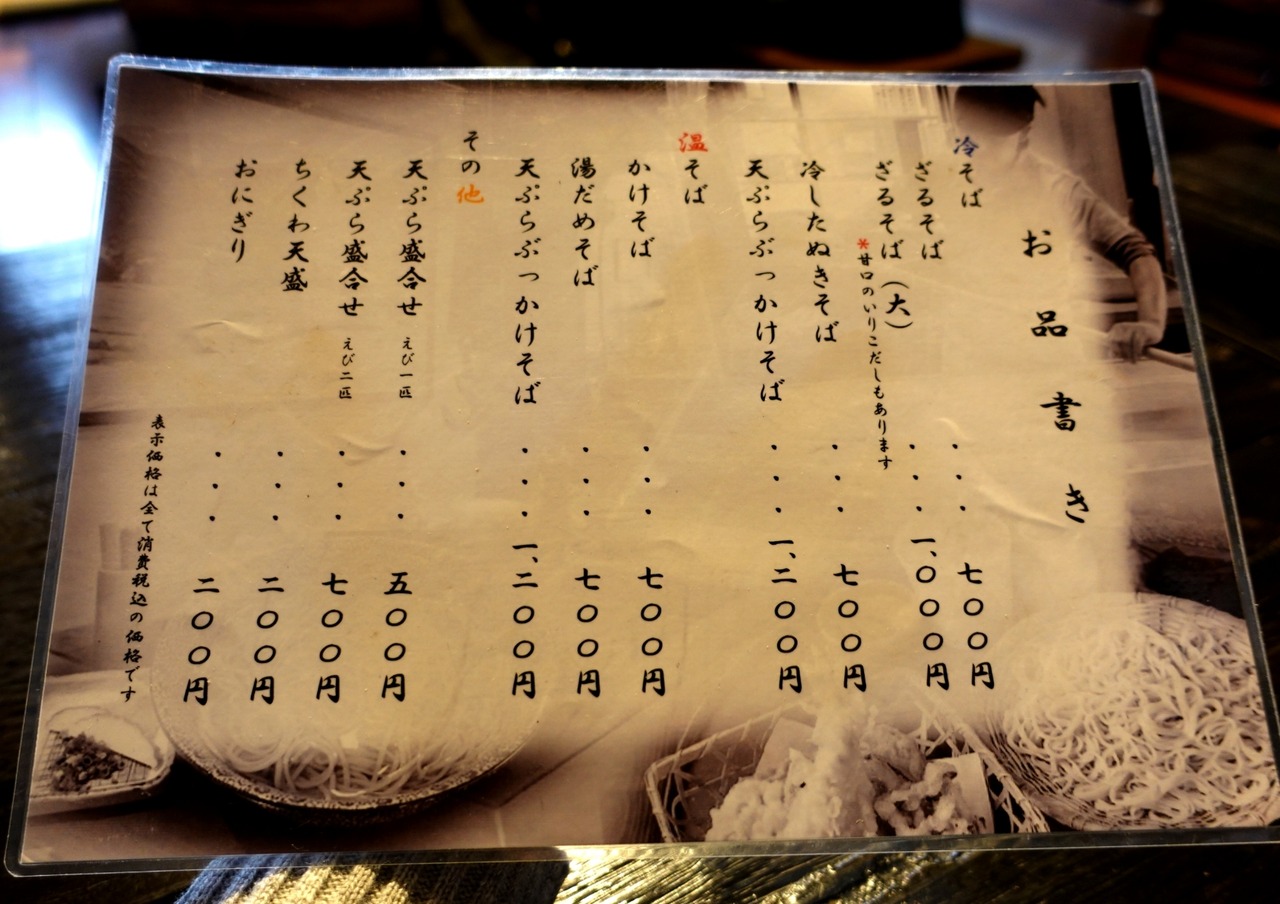 お品書き
冷そば
ざるそば・・・七〇〇円
ざるそば(大)・・・一、〇〇〇円
*甘口のいりこだしもあります
冷したぬきそば・・・七〇〇円
天ぷらぶっかけそば・・・一、二〇〇円
温そば
かけそば・・・七〇〇円
湯だめそば・・・七〇〇円
天ぷらぶっかけそば・・・一、二〇〇円
その他
天ぷら盛合せ えび一匹・・・五〇〇円
天ぷら盛合せ えび二匹・・・七〇〇円
ちくわ天盛・・・二〇〇円
おにぎり・・・二〇〇円
表示価格は全て消費税込の価格です